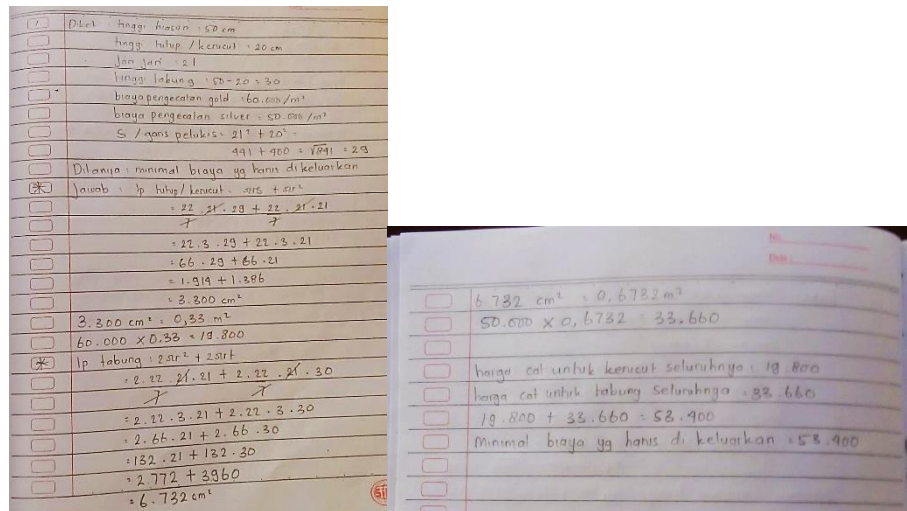 Diket : tinggi hiasan : 50 cm
tinggi tutup / kerucut : 20 cm
Jari Jari : 21
tinggi tabung : 50 - 20 = 30
biaya pengecatan gold : 60.000/m²
biaya pengecatan silver = 50.000/m²
S / garis pelukis = 21² + 20²
441 + 400 = √841 = 29
Ditanya : minimal biaya yg harus dikeluarkan
Jawab : lp tutup/kerucut = πrs + πr²
= 22/7 . 21 . 29 + 22/7 . 21 . 21
= 22.3.29 + 22.3.21
= 66.29 + 66.21
= 1.914 + 1.386
= 3.300 cm²
3.300 cm² = 0,33 m²
60.000 x 0.33 = 19.800
lp tabung : 2πr² + 2πrt
= 2.22/7 . 21 . 21 + 2.22/7 . 21 . 30
= 2.22.3.21 + 2.22.3.30
= 2.66.21 + 2.66.30
= 132.21 + 132.30
= 2.772 + 3960
= 6.732 cm²
No.
Date :
6 732 cm² = 0,6732 m²
50.000 x 0,6732 = 33.660
harga cat untuk kerucut seluruhnya = 19 800
harga cat untuk tabung seluruhnya = 33.660
19.800 + 33.660 = 53.400
Minimal biaya yg harus di keluarkan = 53.400